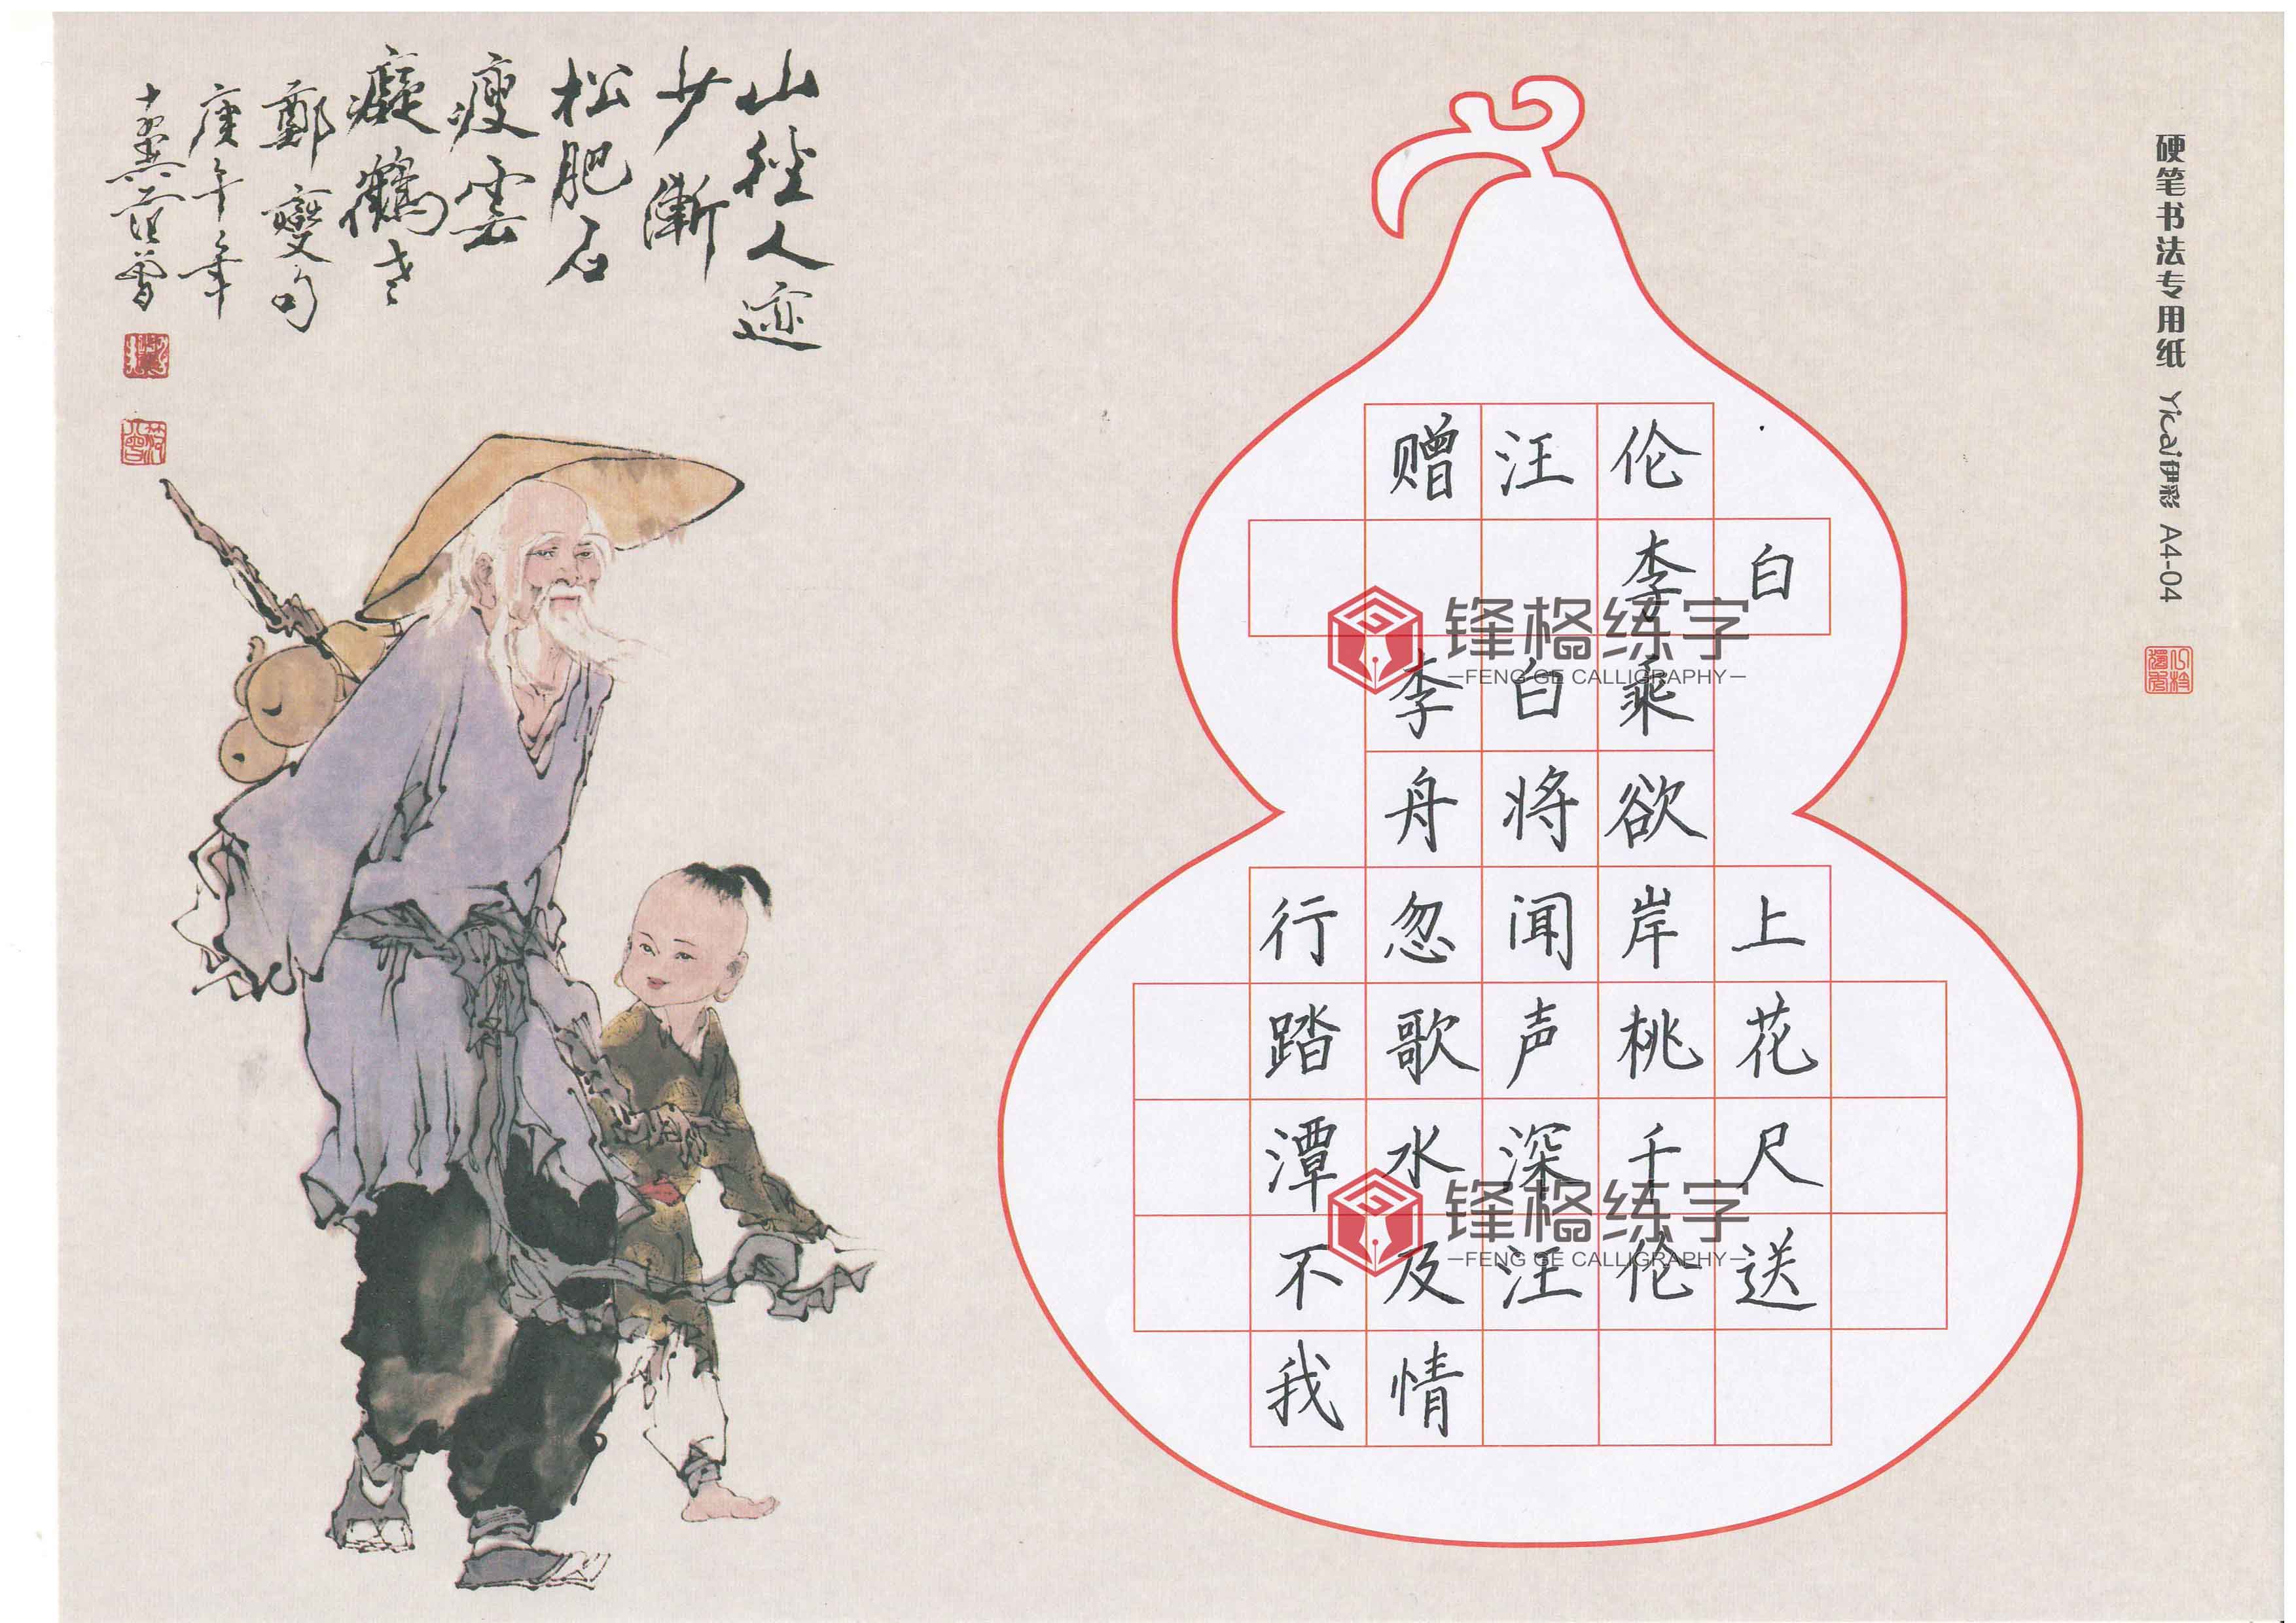 山徑人迹
少漸
松肥石
瘦雲
癡鶴老
鄭燮句
庚午年
十翼范曾
赠汪伦
李白
李白乘
舟将欲
行忽闻岸上
踏歌声桃花
潭水深千尺
不及汪伦送
我情
锋格练字
FENG GE CALLIGRAPHY
锋格练字
FENG GE CALLIGRAPHY
硬笔书法专用纸 Yicai伊彩 A4-04